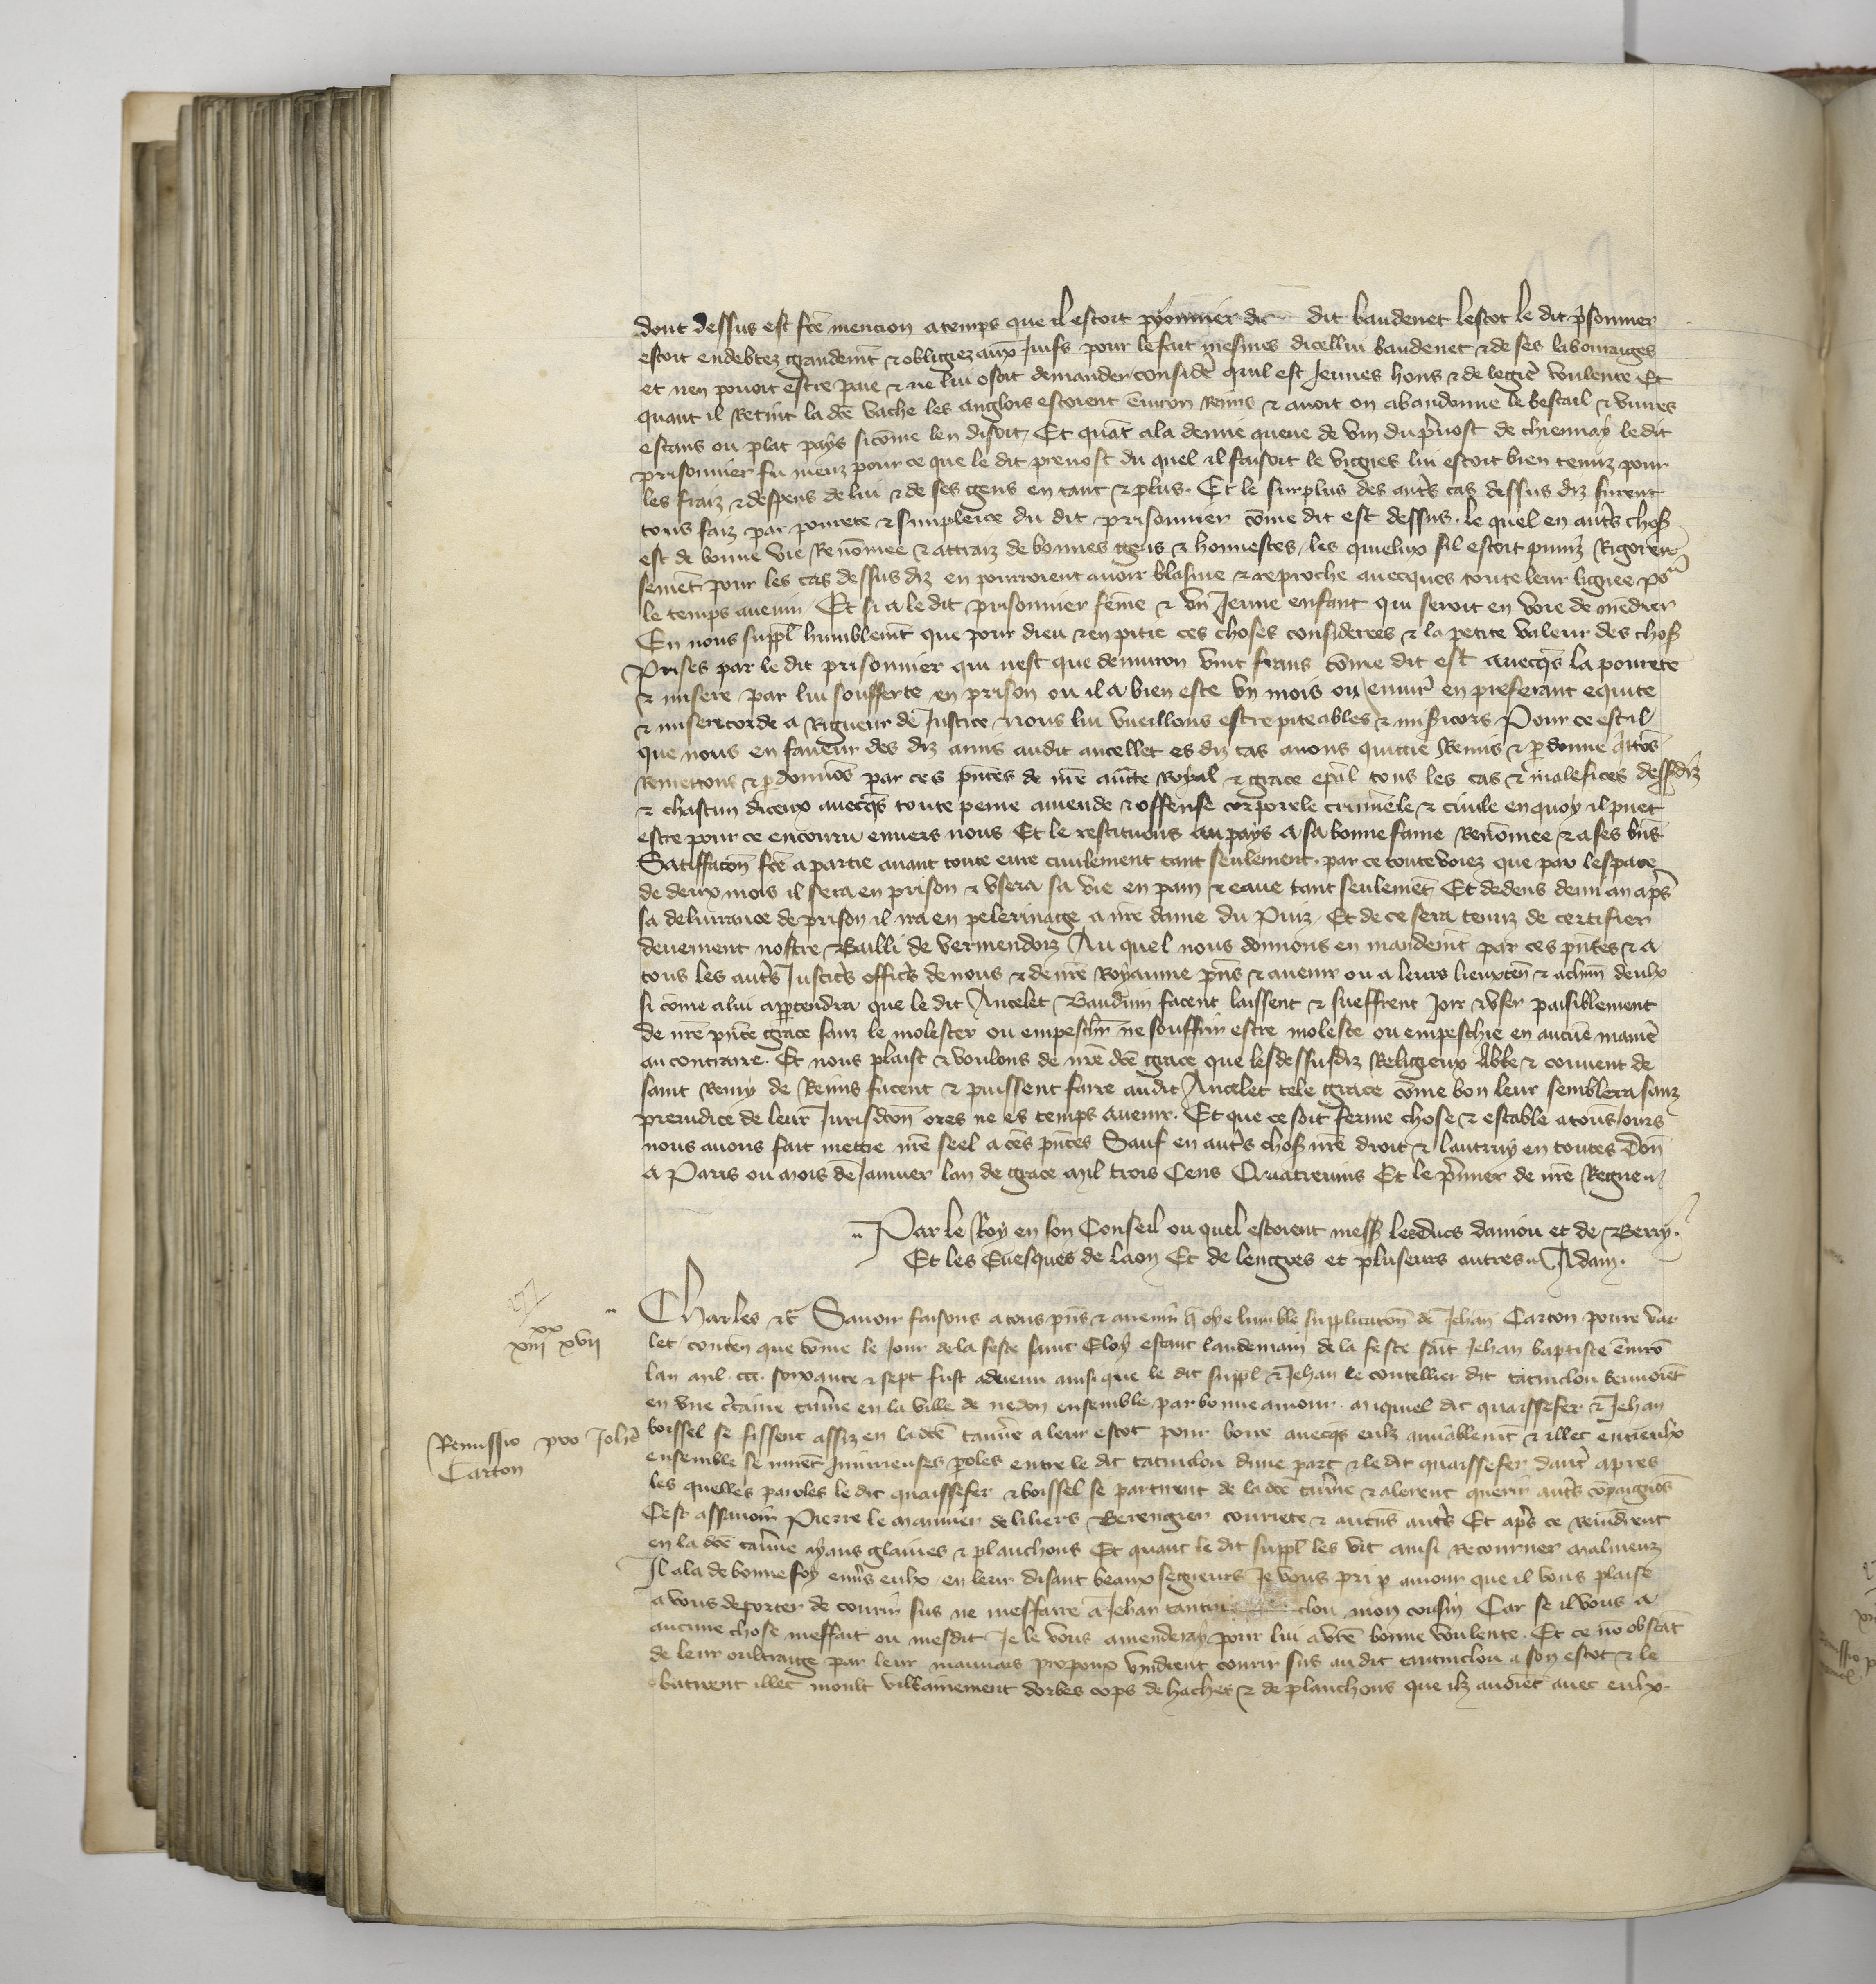 dont dessus est fcē mencion atemps que il estoit pyonnier du dit baudenet lescot le dit p̄sonnier
estoit endebtez grandemt̄ & obligiez aux Juifs pour le fait mesmes dicellui baudenet & de ses labouraiges
et nen pouoit estre paie & ne lui osoit demander considē quil est Jeunes hons & de legiē voulente Et
quant il Retint la dcē vache les anglois estoient enuiron Reins & auoit on abandonne le bestail & viures
estans ou plat pays sicōme len disoit Et quāt ala demie queue de vin du p̄uost de chiennay ledit
prisonnier fu meuz pour ce que le dit preuost du quel il faisoit le vignes lui estoit bien tenuz pour
les fraiz & despens de lui & de ses gens en tant & plus. Et le surplus des autr̄s cas dessus diz furent
tous faiz par pourete & simplece du dit prisonnier cōme dit est dessus. le quel en autr̄s choß
est de bonne vie Renōmee & attraiz de bonnes gens & honnestes les quielux sil estoit puniz Rigoreu
semēt pour les cas dessus diz en pourroient auoir blasme & reproche auecques toute leur lignee po^r
le temps auenir Et si a le dit prisonnier fēme & vn Jeune enfant qui seroit en voie de mēdier
En nous suppl̄ humblemt̄ que pour dieu & en pitie ces choses considerees & la petite valeur des choß
Prises par le dit prisonnier qui nest que denuiron vint frans cōme dit est auecqs̄ la pourete
& misere par lui soufferte en prison ou il a bien este vn mois ou enuir̄ en preferant equite
& misericorde a Rigueur de Justice nous lui vueillons estre piteables & mißicors Pour ce est il
que nous en faueur des diz amis audit ancellet es diz cas auons quictie Remis & p̄donne q̄ttōs
Remettons & p̄donnōs par ces pn̄tes de nr̄e aucte Royal & grace esp̄al tous les cas & malefices dessusdiz
& chascun diceux auecqs̄ toute peine amende & offense corporele crimīele & ciuile en quoy il puet
estre pour ce encouru enuers nous Et le restituons au pays a sa bonne fame Renōmee & a ses bn̄s
Satiffaccōn fcē a partie auant toute euure ciuilement tant seulement. par ce touteuoiez que par lespace
de deux mois il sera en prison & vsera sa vie en pain & eaue tant seulemēt Et dedens demi an ap̄s
sa deliurance de prison il ira en pelerinage a nr̄e dame du Puiz. Et de ce sera tenuz de certifier
deuement nostre Bailli de vermendoiz Au quel nous donnons en mandemt̄ par ces pn̄tes & a
tous les autr̄s Justicrs̄ officrs̄ de nous & de nr̄e Royaume pn̄s & auenir ou a leurs lieuxten̄ & a chūn deulx
si cōme a lui appartendra que le dit Ancelet Baudum facent laissent & sueffrent Joir & vser paisiblement
de nr̄e pn̄te grace sanz le molester ou empeschr̄ ne souffrir estre moleste ou empeschie en aucūe maniē
au contraire. Et nous plaist & voulons de nr̄e dcē grace que lesdessusdiz Religieux Abbe & couuent de
saint Remy de Reins facent & puissent faire audit Ancelet tele grace cōme bon leur semblera sanz
preiudice de leur Jurisdicōn ores ne es temps auenir. Et que ce soit ferme chose & estable a tous Jours
nous auons fait mettre nr̄e seel a ces pn̄tes Sauf en autr̄s choß nr̄e droit & lautruy en toutes Don̄
A Paris ou mois de Januier lan de grace mil trois Cens Quatreuins Et le p̄mier de nr̄e Regne.
Par le Roy en son Conseil ou quel estoient meß les Ducs daniou et de Berry.
Et les Euesques de Laon Et de lengres et pluseurs autres. Adam.
Charles &c̄ Sauoir faisons a tous pn̄s & auenir q̄ oye lumble supplicaciōn de Jehan Carton poure var
let conten̄ que cōme le Jour de la feste saint Eloy estant landemain de la feste saīt Jehan baptiste enuirō
lan mil. ccc. soixante & sept fust aduenu ainsi que le dit suppl̄ & Jehan le coutellier dit tatinclou beuuoiēt
en vne c̄taine tau̅ne en la ville de nedon ensemble par bonne amour. auquiel dit quaissefer & Jehan
boissel se fissent assiz en ladcē tau̅ne a leur escot pour boire auecqs̄ eulz amiablemt̄ & illec entreulx
ensemble se murēt Iniurieuses p̄oles entre le dit tatinclou dune part & le dit quaissefer dautr̄ apres
les quelles paroles le dit quaissefer & boissel se partirent de la dcē tau̅ne & alerent querir autr̄s cōpaignōs
Cest assauoir Pierre le manuier de liliers Berengier couriete & aucūs autr̄s Et ap̄s ce reuindrent
en la dcē tau̅ne ayans glaiues & planchons Et quant le dit suppl̄ les vit ainsi retourner malmeuz
Il ala de bonne foy enu̅s eulx en leur disant beaux segneurs Je vous pri p̄ amour que il vous plaise
a vous deporter de courir sus ne meffaire a Jehan tantin clou mon cousin Car se il vous a
aucune chose meffait ou mesdit Je le vous amenderay pour lui a vr̄e bonne voulente. Et ce nō obstāt
de leur oultraige par leur mauuais propoux vindrent courir sus au dit tantinclou a son escot & le
batirent illec moult villainement dorbes cops de haches & de planchons que ilz auoiēt auec eulx.
xiii^xx xvii
Remissio pro Johē
Carton